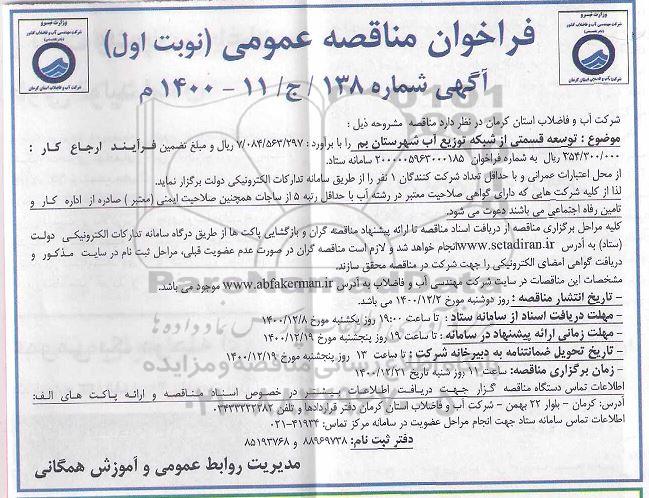 وزارت نیرو
شرکت مهندسی آب و فاضلاب کشور
شرکت آب و فاضلاب استان کرمان
فراخوان مناقصه عمومی (نوبت اول)
آگهی شماره ۱۳۸/ج/۱۱ - ۱۴۰۰ م
وزارت نیرو
شرکت مهندسی آب و فاضلاب کشور
شرکت آب و فاضلاب استان کرمان
شرکت آب و فاضلاب استان کرمان در نظر دارد مناقصه مشروحه ذیل :
موضوع : توسعه قسمتی از شبکه توزیع آب شهرستان بم را با برآورد : ۷/۰۸۴/۵۶۳/۲۹۷ ریال و مبلغ تضمین فرآیند ارجاع کار :
۳۵۴/۳۰۰/۰۰۰ ریال به شماره فراخوان ۲۰۰۰۰۰۵۹۶۳۰۰۰۱۸۵ سامانه ستاد.
از محل اعتبارات عمرانی و با حداقل تعداد شرکت کنندگان ۱ نفر را از طریق سامانه تدارکات الکترونیکی دولت برگزار نماید.
لذا از کلیه شرکت هایی که دارای گواهی صلاحیت معتبر در رشته آب با حداقل رتبه ۵ از ساجات همچنین صلاحیت ایمنی (معتبر) صادره از اداره کار و
تامین رفاه اجتماعی می باشند دعوت می شود.
کلیه مراحل برگزاری مناقصه از دریافت اسناد مناقصه تا ارائه پیشنهاد مناقصه گران و بازگشایی پاکت ها از طریق درگاه سامانه تدارکات الکترونیکی دولت
(ستاد) به آدرس www.setadiran.ir انجام خواهد شد و لازم است مناقصه گران در صورت عدم عضویت قبلی، مراحل ثبت نام در سایت مذکور و
دریافت گواهی امضای الکترونیکی را جهت شرکت در مناقصه محقق سازند.
مشخصات این مناقصات در سایت شرکت مهندسی آب و فاضلاب به آدرس www.abfakerman.ir موجود می باشد.
– تاریخ انتشار مناقصه : روز دوشنبه مورخ ۱۴۰۰/۱۲/۲ می باشد.
– مهلت دریافت اسناد از سامانه ستاد : تا ساعت ۱۹:۰۰ روز یکشنبه مورخ ۱۴۰۰/۱۲/۸
– مهلت زمانی ارائه پیشنهاد در سامانه : تا ساعت ۱۹ روز پنجشنبه مورخ ۱۴۰۰/۱۲/۱۹
– تاریخ تحویل ضمانتنامه به دبیرخانه شرکت : تا ساعت ۱۳ روز پنجشنبه مورخ ۱۴۰۰/۱۲/۱۹
– زمان برگزاری مناقصه: ساعت ۱۱ روز شنبه تاریخ ۱۴۰۰/۱۲/۲۱
اطلاعات تماس دستگاه مناقصه گزار جهت دریافت اطلاعات بیشتر در خصوص اسناد مناقصه و ارائه پاکت های الف:
آدرس: کرمان - بلوار ۲۲ بهمن - شرکت آب و فاضلاب استان کرمان دفتر قراردادها و تلفن ۰۳۴۳۳۲۲۲۸۲
اطلاعات تماس سامانه ستاد جهت انجام مراحل عضویت در سامانه مرکز تماس: ۴۱۹۳۴-۰۲۱
دفتر ثبت نام: ۸۸۹۶۹۷۳۸ و ۸۵۱۹۳۷۶۸
مدیریت روابط عمومی و آموزش همگانی